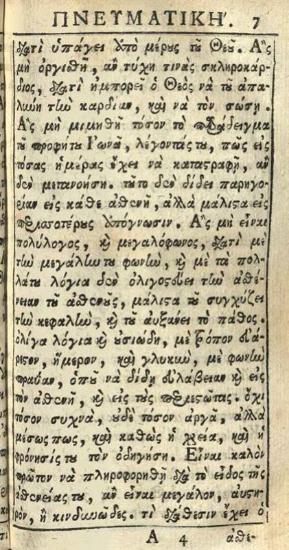 ΠΝΕΥΜΑΤΙΚΗ'. 7
διατὶ ὑπάγει ἀπὸ μέρος τοῦ Θεοῦ. Ἂς
μὴ ὀργισθῇ, ἂν τύχῃ τινὰς σκληροκάρ-
διος, διατὶ ἠμπορεῖ ὁ Θεὸς νὰ τοῦ ἁπα-
λύνῃ τὴν καρδίαν, καὶ νὰ τὸν σώσῃ.
Ἂς μὴ μιμηθῇ τόσον τὸ παράδειγμα
τοῦ προφήτου Ἰωνᾶ, λέγοντάς του, πῶς εἰς
τόσας ἡμέρας ἔχει νὰ καταστραφῇ, ἂν
δὲν μετανοήσῃ. τοῦτο δὲν δίδει παρηγο-
ρίαν εἰς κάθε ἀσθενῆ, ἀλλὰ μάλιστα εἰς
περισσοτέρους ἀπόγνωσιν. Ἂς μὴ εἶναι
πολύλογος, καὶ μεγαλόφωνος, διατὶ μὲ
τὴν μεγάλην τοῦ φωνὴν, καὶ μὲ τὰ πολ-
λά του λόγια δὲν ὀλιγοστεύει τὴν ἀσθέ-
νειαν τοῦ ἀσθενοῦς, μάλιστα τοῦ συγχύζει
τὴν κεφαλὴν, καὶ τοῦ αὐξάνει τὸ πάθος.
ὀλίγα λόγια καὶ οὐσιώδη, μὲ τρόπον εὐά-
ρεστον, ἥμερον, καὶ γλυκὺν, μὲ φωνὴν
πραεῖαν, ὁποῦ νὰ δίδῃ εὐλάβειαν καὶ εἰς
τὸν ἀσθενῆ, καὶ εἰς τοὺς παρεστῶτας. ὄχι
τόσον συχνὰ, οὐδὲ τόσον ἀργὰ, ἀλλὰ
μέσως πως, καὶ καθὼς ἡ χρεία, καὶ ἡ
φρόνησίς του τὸν ὁδηγήσῃ. Εἶναι καλὸν
πρῶτον νὰ πληροφορηθῇ διὰ τὸ εἶδος τῆς
ἀσθενείας του, ἂν εἶναι μεγάλον, αὐστη-
ρὸν, ἢ κινδυνῶδες. τί διάθεσιν ἔχει ὁ
A 4 ἀσθε-